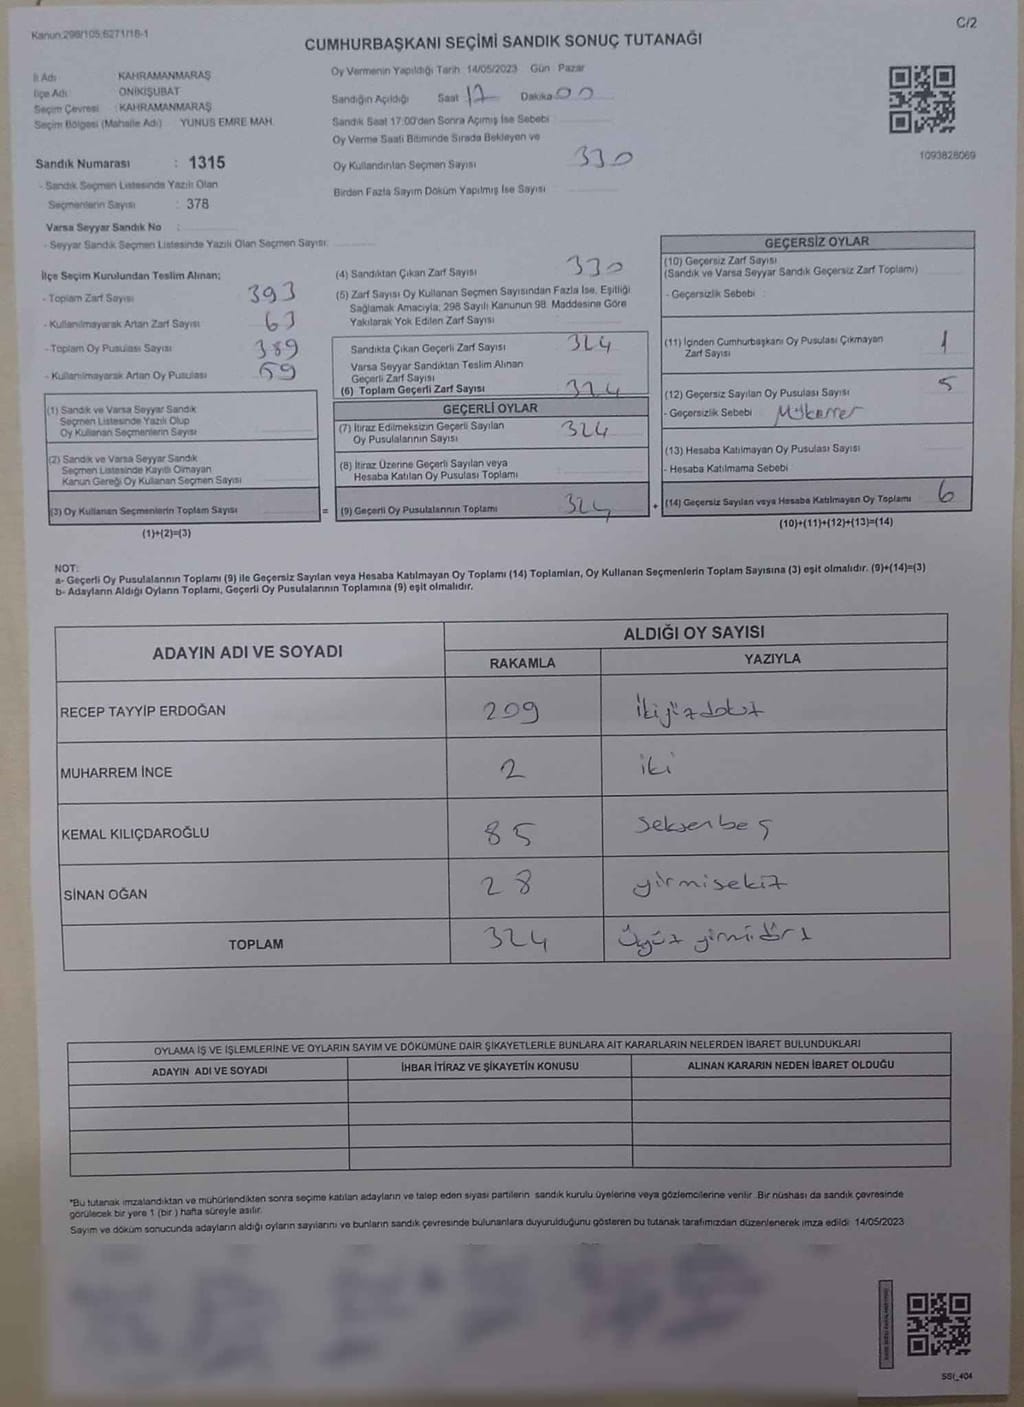 Kanun:298/105,6271/18-1
C/2
CUMHURBAŞKANI SEÇİMİ SANDIK SONUÇ TUTANAĞI
İl Adı : KAHRAMANMARAŞ
İlçe Adı : ONİKİŞUBAT
Seçim Çevresi : KAHRAMANMARAŞ
Seçim Bölgesi (Mahalle Adı) YUNUS EMRE MAH.
Sandık Numarası : 1315
- Sandık Seçmen Listesinde Yazılı Olan
Seçmenlerin Sayısı : 378
Varsa Seyyar Sandık No :
- Seyyar Sandık Seçmen Listesinde Yazılı Olan Seçmen Sayısı:
Oy Vermenin Yapıldığı Tarih: 14/05/2023 Gün : Pazar
Sandığın Açıldığı Saat 17 Dakika 00
Sandık Saat 17:00'den Sonra Açımış İse Sebebi :
Oy Verme Saati Bitiminde Sırada Bekleyen ve
Oy Kullandırılan Seçmen Sayısı 330
Birden Fazla Sayım Döküm Yapılmış İse Sayısı
1093828069
İlçe Seçim Kurulundan Teslim Alınan;
- Toplam Zarf Sayısı 393
- Kullanılmayarak Artan Zarf Sayısı 63
- Toplam Oy Pusulası Sayısı 389
- Kullanılmayarak Artan Oy Pusulası 59
(1) Sandık ve Varsa Seyyar Sandık
Seçmen Listesinde Yazılı Olup
Oy Kullanan Seçmenlerin Sayısı
(2) Sandık ve Varsa Seyyar Sandık
Seçmen Listesinde Kayıtlı Olmayan
Kanun Gereği Oy Kullanan Seçmen Sayısı
(3) Oy Kullanan Seçmenlerin Toplam Sayısı
(1)+(2)=(3)
=
(4) Sandıktan Çıkan Zarf Sayısı 330
(5) Zarf Sayısı Oy Kullanan Seçmen Sayısından Fazla İse, Eşitliği
Sağlamak Amacıyla; 298 Sayılı Kanunun 98. Maddesine Göre
Yakılarak Yok Edilen Zarf Sayısı
Sandıkta Çıkan Geçerli Zarf Sayısı 324
Varsa Seyyar Sandıktan Teslim Alınan
Geçerli Zarf Sayısı
(6) Toplam Geçerli Zarf Sayısı 324
GEÇERLİ OYLAR
(7) İtiraz Edilmeksizin Geçerli Sayılan
Oy Pusulalarının Sayısı 324
(8) İtiraz Üzerine Geçerli Sayılan veya
Hesaba Katılan Oy Pusulası Toplamı
(9) Geçerli Oy Pusulalarının Toplamı 324
+
GEÇERSİZ OYLAR
(10) Geçersiz Zarf Sayısı
(Sandık ve Varsa Seyyar Sandık Geçersiz Zarf Toplamı)
- Geçersizlik Sebebi :
(11) İçinden Cumhurbaşkanı Oy Pusulası Çıkmayan
Zarf Sayısı 1
(12) Geçersiz Sayılan Oy Pusulası Sayısı 5
- Geçersizlik Sebebi Mükerrer
(13) Hesaba Katılmayan Oy Pusulası Sayısı
- Hesaba Katılmama Sebebi
(14) Geçersiz Sayılan veya Hesaba Katılmayan Oy Toplamı 6
(10)+(11)+(12)+(13)=(14)
NOT:
a- Geçerli Oy Pusulalarının Toplamı (9) ile Geçersiz Sayılan veya Hesaba Katılmayan Oy Toplamı (14) Toplamları, Oy Kullanan Seçmenlerin Toplam Sayısına (3) eşit olmalıdır. (9)+(14)=(3)
b- Adayların Aldığı Oyların Toplamı, Geçerli Oy Pusulalarının Toplamına (9) eşit olmalıdır.
ADAYIN ADI VE SOYADI
ALDIĞI OY SAYISI
RAKAMLA YAZIYLA
RECEP TAYYİP ERDOĞAN 209 ikiyüzdokuz
MUHARREM İNCE 2 iki
KEMAL KILIÇDAROĞLU 85 seksenbeş
SİNAN OĞAN 28 yirmisekiz
TOPLAM 324 Üçyüz yirmidört
OYLAMA İŞ VE İŞLEMLERİNE VE OYLARIN SAYIM VE DÖKÜMÜNE DAİR ŞİKAYETLERLE BUNLARA AİT KARARLARIN NELERDEN İBARET BULUNDUKLARI
ADAYIN ADI VE SOYADI İHBAR İTİRAZ VE ŞİKAYETİN KONUSU ALINAN KARARIN NEDEN İBARET OLDUĞU
*Bu tutanak imzalandıktan ve mühürlendikten sonra seçime katılan adayların ve talep eden siyasi partilerin sandık kurulu üyelerine veya gözlemcilerine verilir. Bir nüshası da sandık çevresinde
görülecek bir yere 1 (bir ) hafta süreyle asılır.
Sayım ve döküm sonucunda adayların aldığı oyların sayılarını ve bunların sandık çevresinde bulunanlara duyurulduğunu gösteren bu tutanak tarafımızdan düzenlenerek imza edildi. 14/05/2023
SSI_404